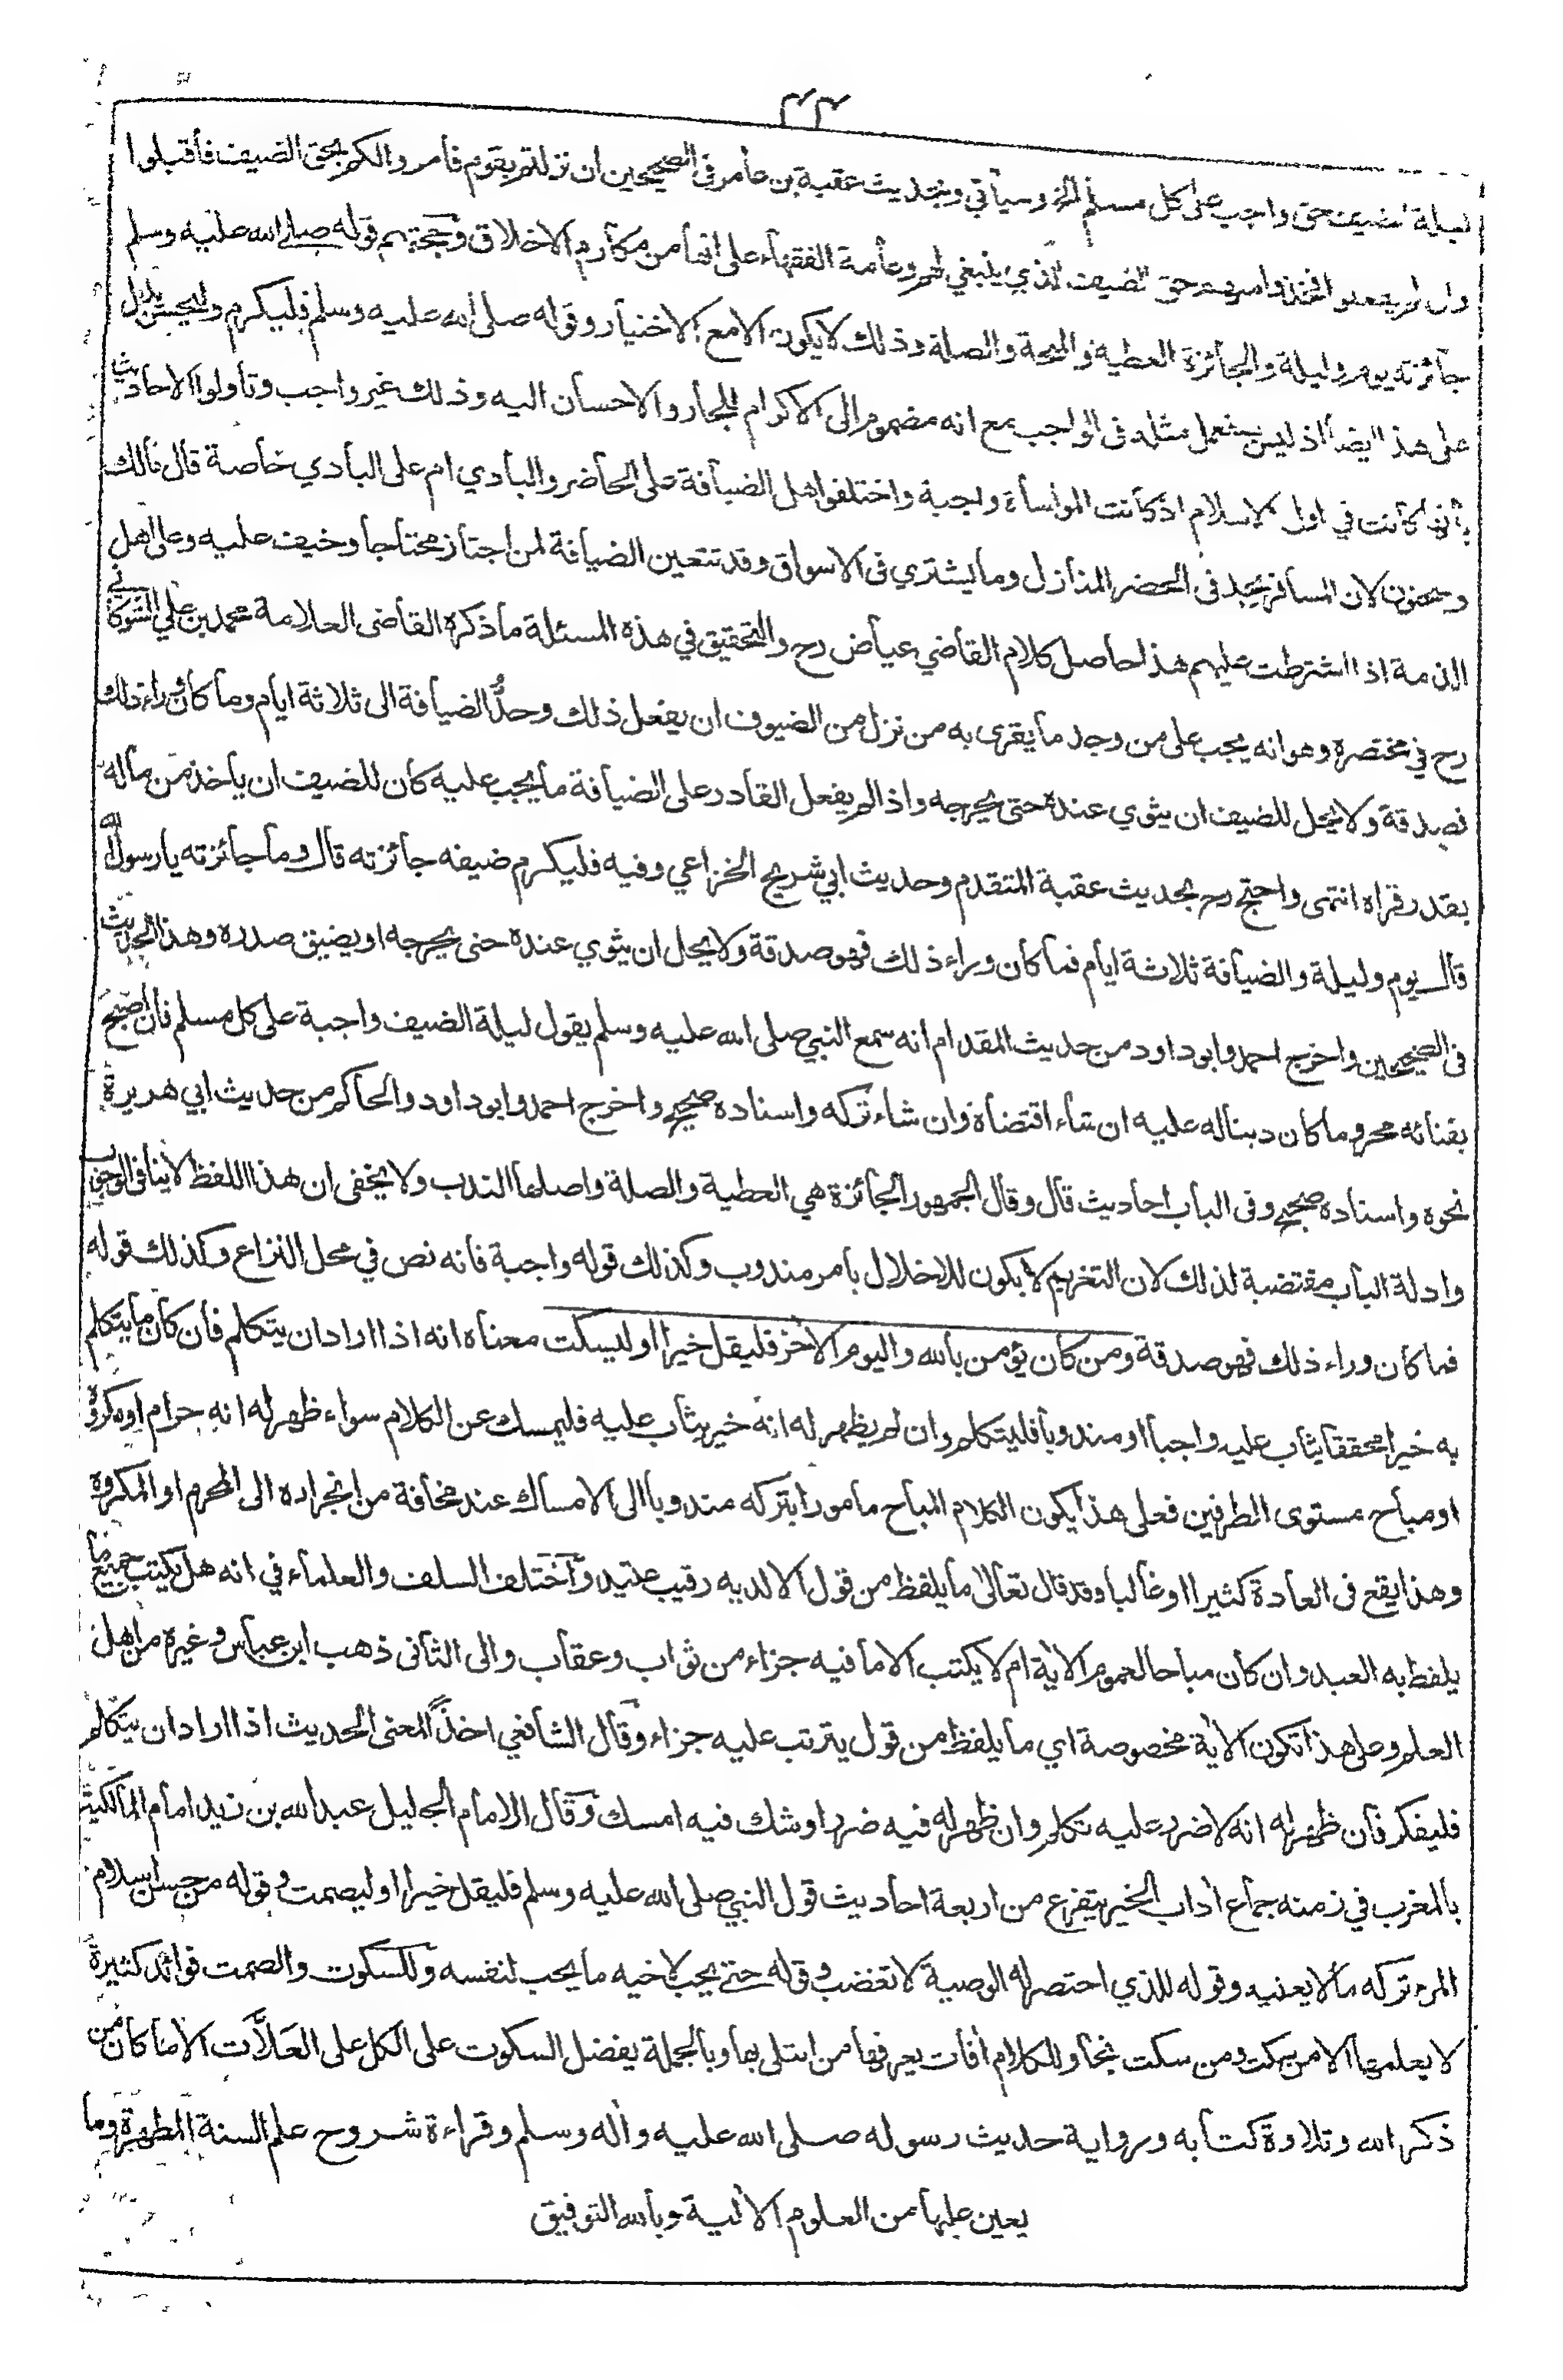 ٣٣
ليلة الضيف حق واجب على كل مسلم الخ وسيأتي وبحديث عقبة بن عامر فى الصحيحين ان نزلتم بقوم فأمروا لكم بحق الضيف فأقبلوا
وان لم يفعلوا فخذوا منهم حق الضيف الذي ينبغي لهم وعامة الفقهاء على انها من مكارم الاخلاق وحجتهم قوله صلى الله عليه وسلم
جائزته يوم وليلة والجائزة العطية والمنحة والصلة وذلك لا يكون الا مع الاختيار وقوله صلى الله عليه وسلم فليكرم وليحسن يدل
على هذا ايضا اذ ليس يستعمل مثله فى الواجب مع انه مضموم الى الاكرام للجار والاحسان اليه وذلك غير واجب وتأولوا الاحاديث
بأنها كانت في اول الاسلام اذ كانت المواساة واجبة واختلفوا هل الضيافة على الحاضر والبادي ام على البادي خاصة قال مالك
وسحنون لان المسافر يجد فى الحضر المنازل وما يشتري فى الاسواق وقد تتعين الضيافة لمن اجتاز محتاجا وخيف عليه وعلى اهل
الذمة اذا اشترطت عليهم هذا حاصل كلام القاضي عياض رح والتحقيق في هذه المسئلة ما ذكره القاضى العلامة محمد بن علي الشوكاني
رح في مختصره وهو انه يجب على من وجد ما يقرى به من نزل من الضيوف ان يفعل ذلك وحدُّ الضيافة الى ثلاثة ايام وما كان وراء ذلك
فصدقة ولا يحل للضيف ان يثوي عنده حتى يحرجه واذا لم يفعل القادر على الضيافة ما يجب عليه كان للضيف ان يأخذ من ماله
بقدر قراه انتهى واحتج رح بحديث عقبة المتقدم وحديث ابي شريح الخزاعي وفيه فليكرم ضيفه جائزته قال وما جائزته يا رسول الله
قال يوم وليلة والضيافة ثلاثة ايام فما كان وراء ذلك فهو صدقة ولا يحل ان يثوي عنده حتى يحرجه او يضيق صدره وهذا الحديث
فى الصحيحين واخرج احمد وابو داود من حديث المقدام انه سمع النبي صلى الله عليه وسلم يقول ليلة الضيف واجبة على كل مسلم فان اصبح
بفنائه محروما كان دينا له عليه ان شاء اقتضاه وان شاء تركه واسناده صحيح واخرج احمد وابو داود والحاكم من حديث ابي هريرة
نحوه واسناده صحيح وفى الباب احاديث قال وقال الجمهور الجائزة هي العطية والصلة واصلها الندب ولا يخفى ان هذا اللفظ لا ينافى الوجوب
وادلة الباب مقتضية لذلك لان التغريم لا يكون للاخلال بأمر مندوب وكذلك قوله واجبة فانه نص في محل النزاع وكذلك قوله
فما كان وراء ذلك فهو صدقة ومن كان يؤمن بالله واليوم الاخر فليقل خيرا او ليسكت معناه انه اذا اراد ان يتكلم فان كان ما يتكلم
به خيرا محققا يثاب عليه واجبا او مندوبا فليتكلم وان لم يظهر له انه خير يثاب عليه فليمسك عن الكلام سواء ظهر له انه حرام او مكروه
او مباح مستوى الطرفين فعلى هذا يكون الكلام المباح مأمورا بتركه مندوبا الى الامساك عند مخافة من انجراره الى المحرم او المكروه
وهذا يقع فى العادة كثيرا او غالبا وقد قال تعالى ما يلفظ من قول الا لديه رقيب عتيد واختلف السلف والعلماء في انه هل يكتب جميع ما
يلفظ به العبد وان كان مباحا لعموم الاية ام لا يكتب الا ما فيه جزاء من ثواب وعقاب والى الثانى ذهب ابن عباس وغيره من اهل
العلم وعلى هذا تكون الاية مخصوصة اي ما يلفظ من قول يترتب عليه جزاء وقال الشافعي اخذاً لمعنى الحديث اذا اراد ان يتكلم
فليفكر فان ظهر له انه لا ضرر عليه تكلم وان ظهر له فيه ضرر او شك فيه امسك وقال الامام الجليل عبد الله بن زيد امام المالكية
بالمغرب في زمنه جماع اداب الخير يتفرع من اربعة احاديث قول النبي صلى الله عليه وسلم فليقل خيرا او ليصمت وقوله من حسن اسلام
المرء تركه ما لا يعنيه وقوله للذي اختصر له الوصية لا تغضب وقوله حتى يحب لاخيه ما يحب لنفسه وللسكوت والصمت فوائد كثيرة
لا يعلمها الا من سكت ومن سكت نجا وللكلام أفات يعرفها من ابتلى بها وبالجملة يفضل السكوت على الكل على العَلاَّت الا ما كان من
ذكر الله وتلاوة كتابه ورواية حديث رسوله صلى الله عليه وأله وسلم وقراءة شروح علم السنة المطهرة وما
يعين عليها من العلوم الألية وبالله التوفيق